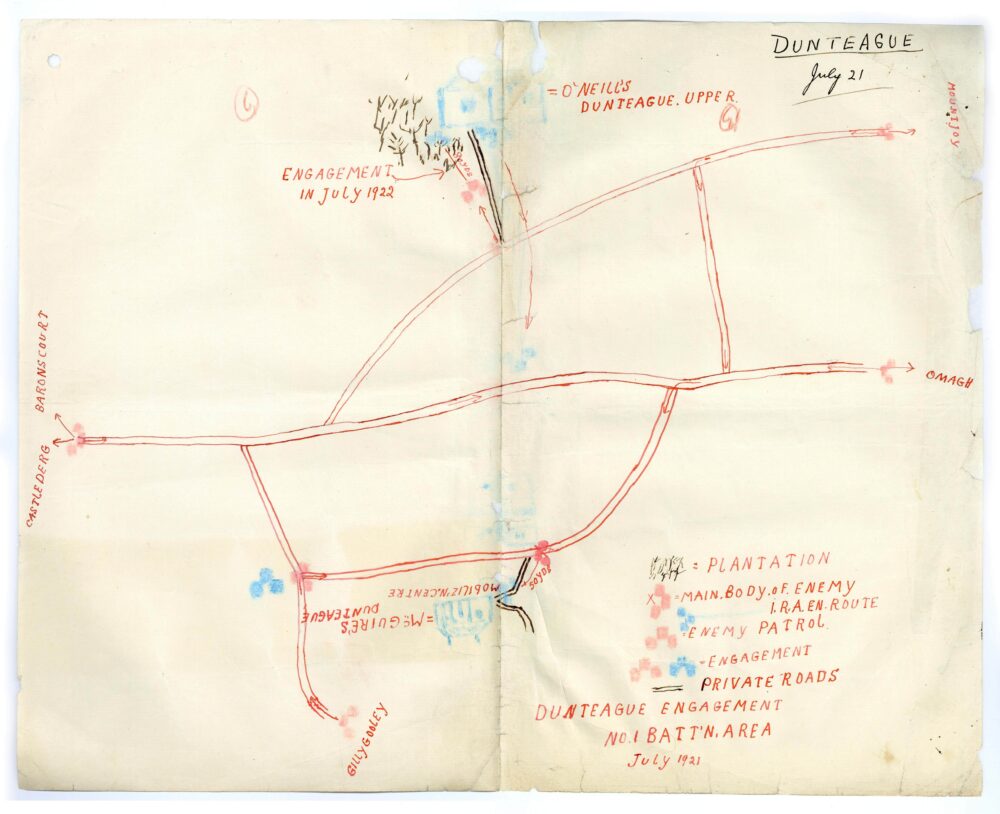 DUNTEAGUE
July 21
= O'NEILL'S
DUNTEAGUE. UPPER.
MOUNTJOY
ENGAGEMENT
IN JULY 1922
BARONSCOURT
CASTLEDERG
OMAGH
50 YDS
MOBILIZ'N. CENTRE
= McGUIRE'S
DUNTEAGUE
GILLYGOOLEY
= PLANTATION
X = MAIN. BODY. OF. ENEMY
I.R.A. EN. ROUTE
= ENEMY PATROL.
= ENGAGEMENT
PRIVATE ROADS
DUNTEAGUE ENGAGEMENT
NO. 1 BATT'N. AREA
July 1921